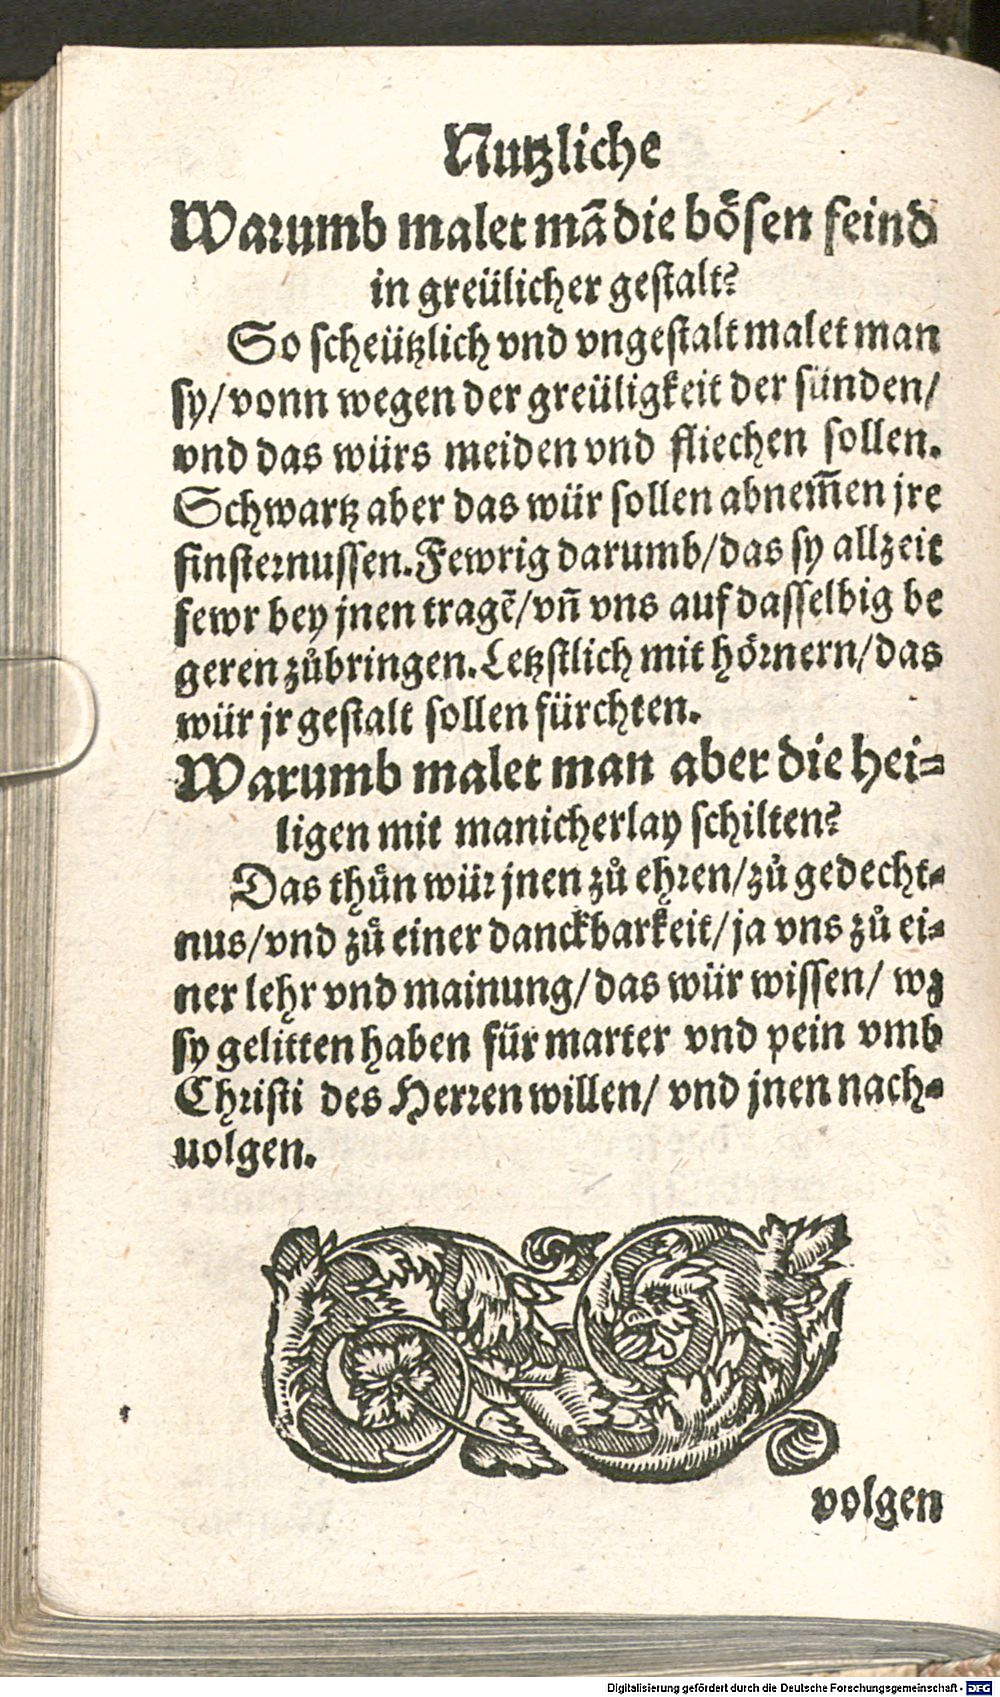 Nutzliche
Warumb malet mā die bösen feind
in greülicher gestalt?
So scheützlich vnd vngestalt malet man
sy/ vonn wegen der greüligkeit der sünden/
vnd das würs meiden vnd fliechen sollen.
Schwartz aber das wür sollen abnem̄en jre
finsternussen. Fewrig darumb/ das sy allzeit
fewr bey jnen tragē/ vn̄ vns auf dasselbig be
geren zůbringen. Letzstlich mit hörnern/ das
wür jr gestalt sollen fürchten.
Warumb malet man aber die hei-
ligen mit manicherlay schilten?
Das thůn wür jnen zů ehren/ zů gedecht-
nus/ vnd zů einer danckbarkeit/ ja vns zů ei-
ner lehr vnd mainung/ das wür wissen/ wz
sy gelitten haben für marter vnd pein vmb
Christi des Herren willen/ vnd jnen nach-
uolgen.
volgen
Digitalisierung gefördert durch die Deutsche Forschungsgemeinschaft - DFG